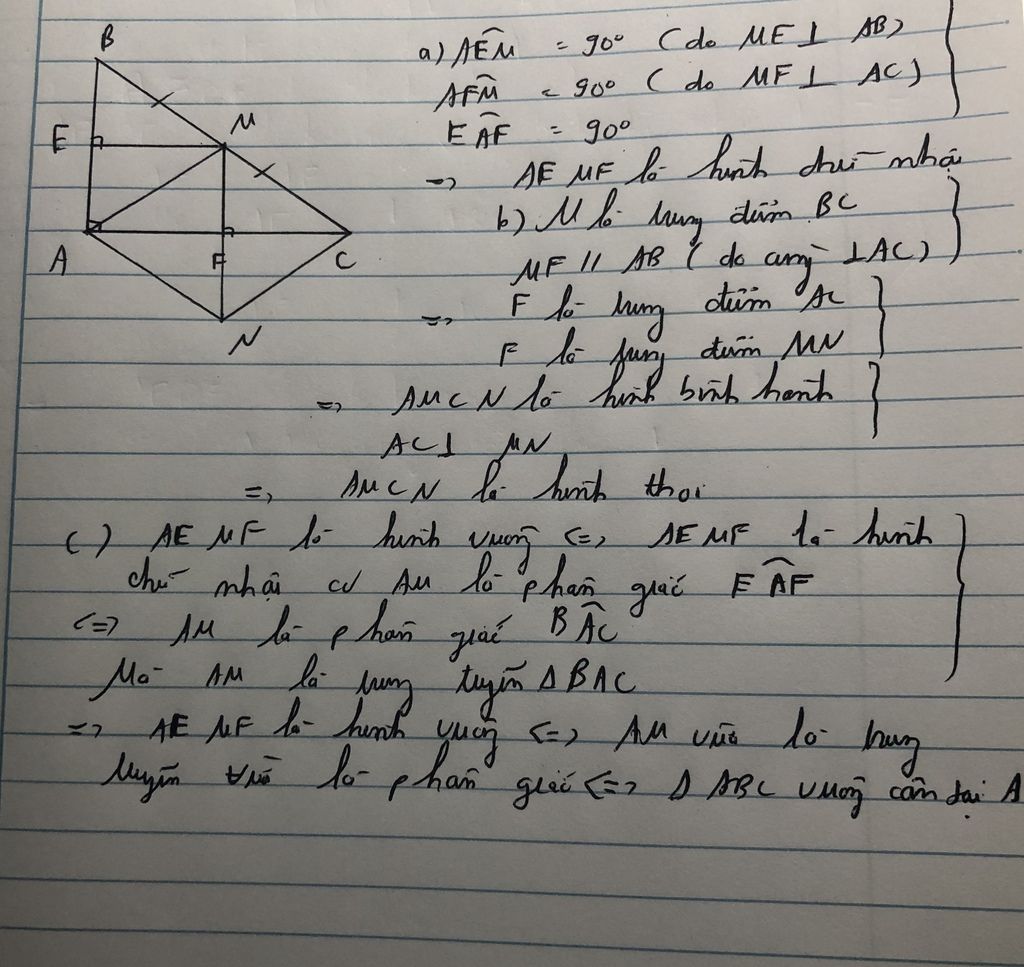 B
M
E
A
F
C
N
a) AÊM = 90° (do ME ⊥ AB)
AF̂M = 90° (do MF ⊥ AC)
EÂF = 90°
=> AEMF là hình chữ nhật
b) M là trung điểm BC
MF // AB (do cùng ⊥ AC)
=> F là trung điểm AC
F là trung điểm MN
=> AMCN là hình bình hành
AC ⊥ MN
=> AMCN là hình thoi
c) AEMF là hình vuông <=> AEMF là hình
chữ nhật có AM là phân giác EÂF
<=> AM là phân giác BÂC
Mà AM là trung tuyến Δ BAC
=> AEMF là hình vuông <=> AM vừa là trung
tuyến vừa là phân giác <=> Δ ABC vuông cân tại A